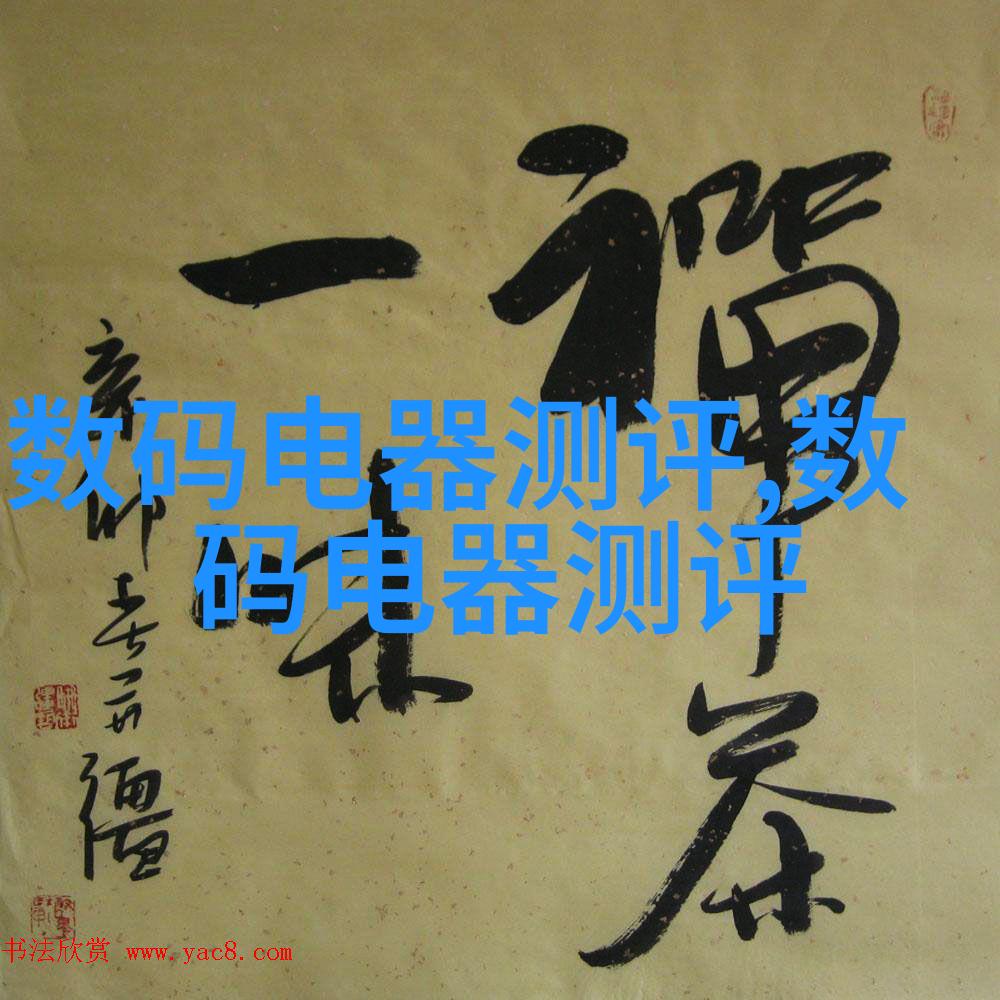 禪茶
一味
数码电器测评,数
码电器测评
书法欣赏 www.yac8.com